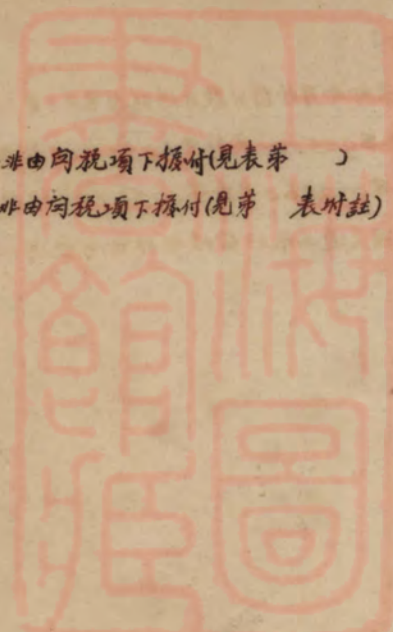 非由関税項下撥付(見表第 )
非由関税項下撥付(見第 表附註)
上海圖
書館藏